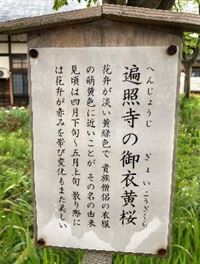 へんじょうじ　ぎょいこうざくら
遍照寺の御衣黄桜
花弁が淡い黄緑色で 貴族僧侶の衣服
の萌黄色に近いことが その名の由来
見頃は四月下旬〜五月上旬 散り際に
は花弁が赤みを帯び変化もまた美しい